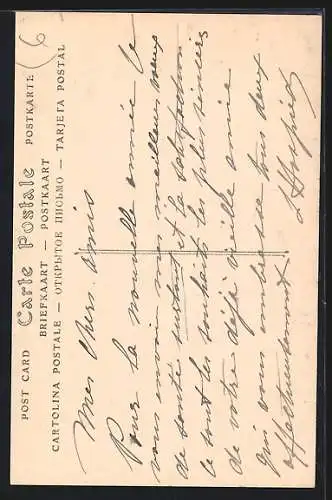 6
POST CARD Carte Postale POSTKARTE
BRIEFKAART — POSTKAART
CARTOLINA POSTALE — ОТКРЫТОЕ ПИСЬМО — TARJETA POSTAL
Mes chers amis
Pour la nouvelle année je
vous envoie mes meilleurs vœux
de santé surtout et de satisfaction
ce sont les souhaits les plus sincères
de votre déjà vieille amie
qui vous embrasse tous deux
affectueusement